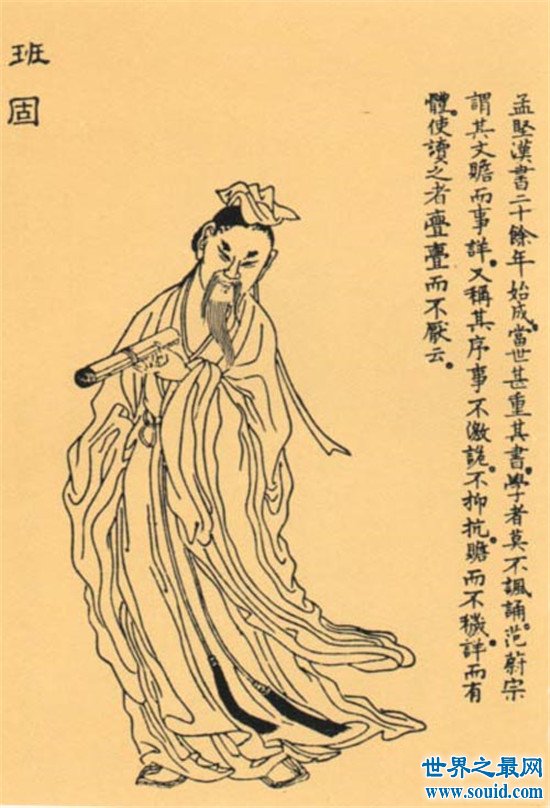 班固
孟堅漢書二十餘年始成。當世甚重其書。學者莫不諷誦。范蔚宗
謂其文贍而事詳。又稱其序事不激詭。不抑抗。贍而不穢。詳而有
體。使讀之者亹亹而不厭云。
世界之最网
www.souid.com